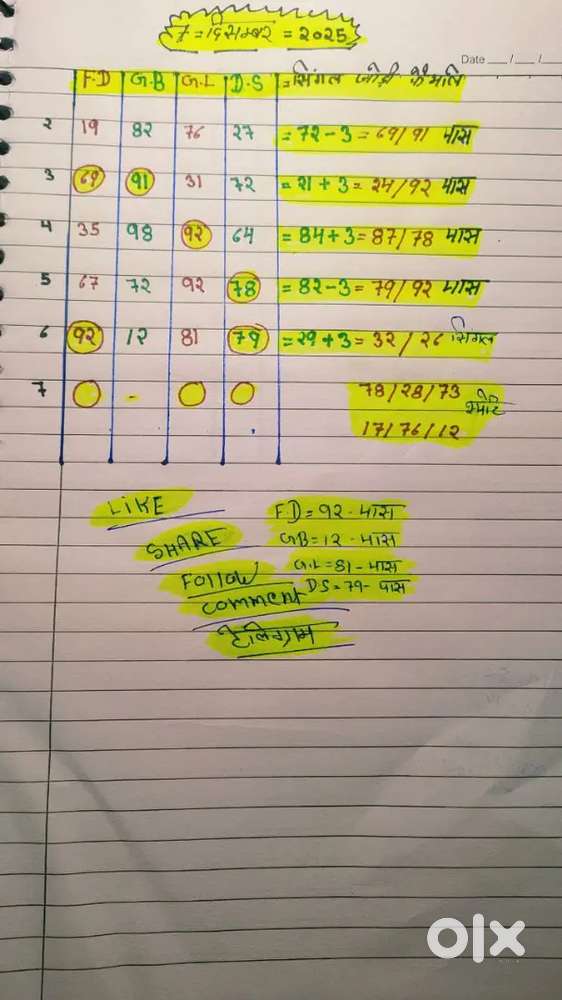 7 = दिसम्बर = 2025
Date __/__/__
F.D G.B G.L D.S = सिंगल जोड़ी फैमलि
2 19 82 76 27 = 72-3 = 69/91 पास
3 69 91 31 72 = 21+3 = 24/92 पास
4 35 98 92 64 = 84+3 = 87/78 पास
5 67 72 92 78 = 82-3 = 79/92 पास
6 92 12 81 79 = 29+3 = 32/26 सिंगल
7 - 78/28/73
17/76/12
LIKE F.D = 92 - पास
SHARE GB = 12 - पास
Follow G.L = 81 - पास
comment DS = 79 - पास
टेलिग्राम
olx